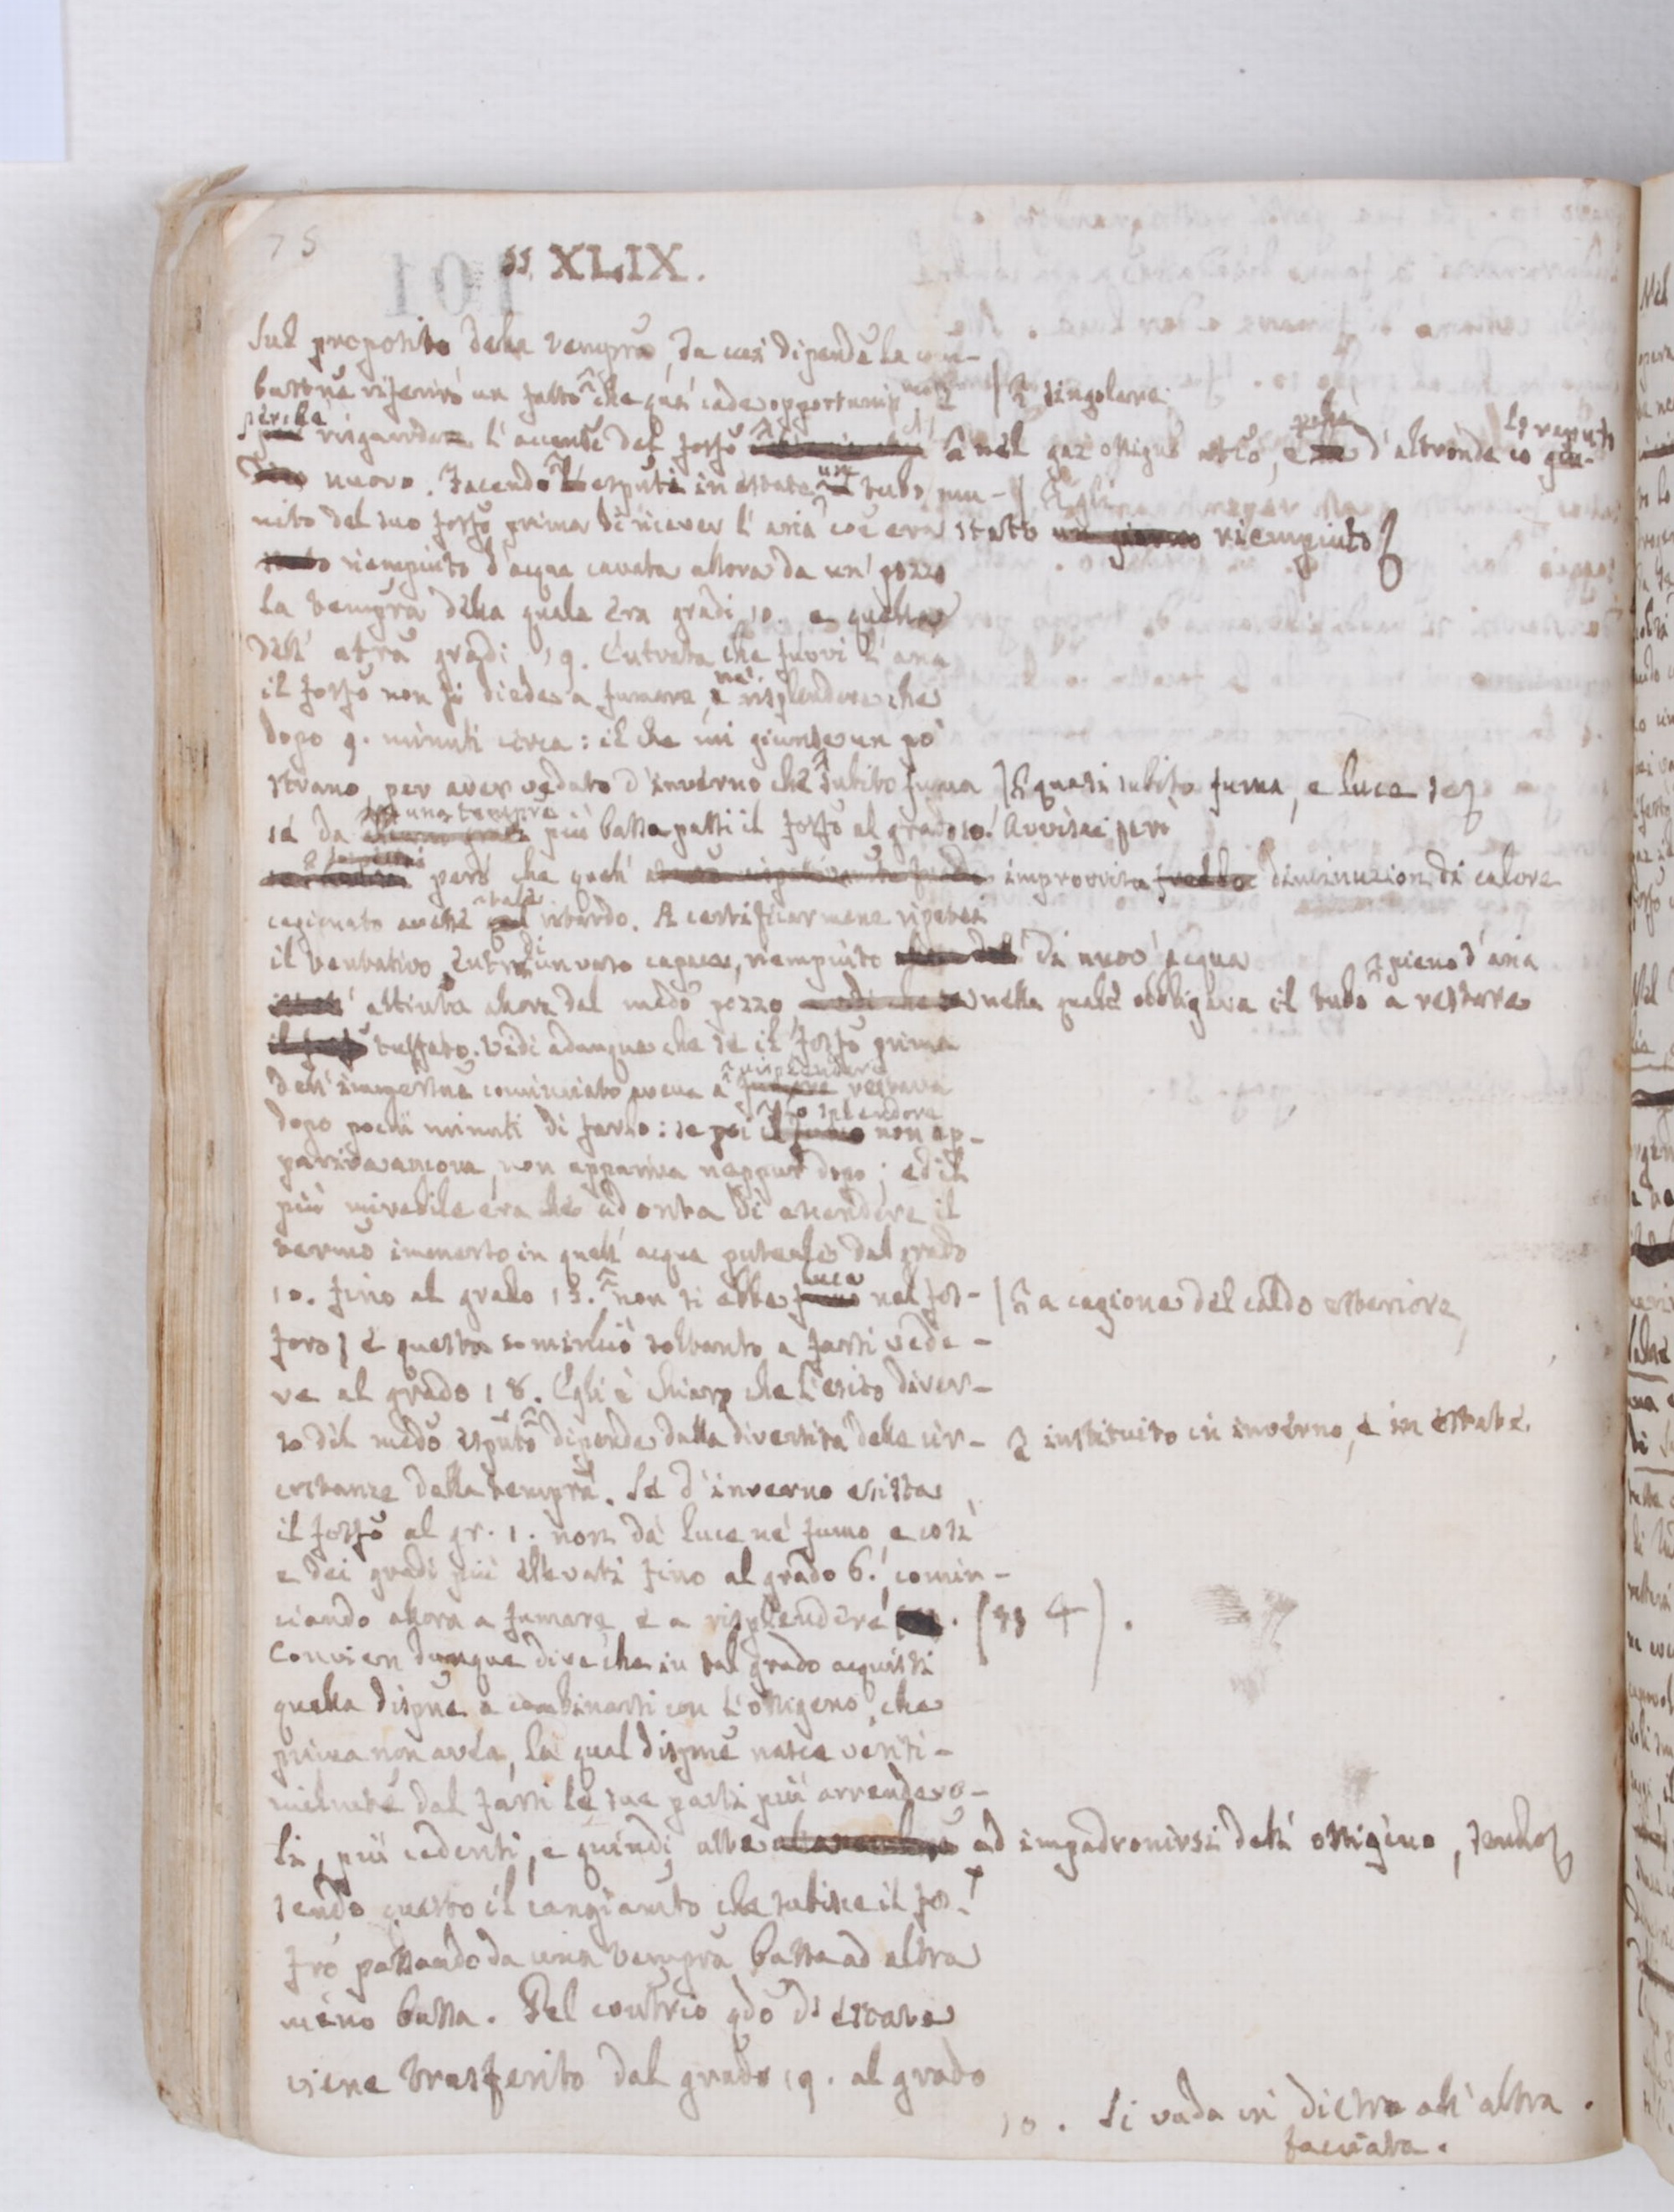 75
§§. XLIX.
Sul proposito della tempra, da cui dipende la com-
bustne riferirò un fatto che quì cade opportuniss | singolare
perchè risguarda l'accense del fosfo nel gaz ossigeno, e d'altronde io lo reputo
nuovo. Facendo l'espto in estate un tubo mu- | Egli
nito del suo fosfo prima di ricever l'aria era stato un giorno riempiuto
riempiuto d'acqua cavata allora da un pozzo
la tempra della quale era gradi 10. e quella
dell' atra gradi 19. Entrata che fuvvi l'aria
il fosfo non si diede a fumare, nè risplendere che
dopo 9. minuti circa: il che mi giunse un pò
strano, per aver veduto d'inverno che subito fuma | quasi subito fuma, e luce se
se da una tempra più bassa passi il fosfo al grado 10. Avvisai però
però che quell' improvvisa diminuzion di calore
cagionato avesse tale ritardo. A certificarmene ripetei
il tentativo entro di un vaso capace, riempiuto di nuov' acqua | pieno d'aria
attinta allora dal medo pozzo, nella quale obbligava il tubo a restare
tuffato. Vidi adunque che se il fosfo prima
dell' immersne cominciato aveva a risplendere restava
dopo pochi minuti di farlo: se poi lo splendore non ap-
pariva ancora, non appariva neppur dopo; ed il
più mirabile era che ad onta di ascendere il
termo immerso in quell' acqua puteale dal grado
10. fino al grado 13. non si ebbe luce nel fos- | a cagione del caldo esteriore,
foro, e questa cominciò soltanto a farsi vede-
re al grado 18. Egli è chiaro che l'esito diver-
so del medo esputo dipende dalla diversità delle cir- | instituito in inverno, e in estate.
costanze della tempra. Se d'inverno esista
il fosfo al gr. 1. non dà luce nè fumo, e così
e dei gradi più elevati fino al grado 6. comin-
ciando allora a fumare, e a risplendere. (§§ 4).
Convien dunque dire che in tal grado acquisti
quella dispne a combinarsi con l'ossigeno, che
prima non avea, la qual dispne nasce verisi-
milmente dal farsi le sue parti più arrendevo-
li, più cedenti, e quindi atte ad impadronirsi dell' ossigeno, sendo
sendo questo il cangiamto che subisce il fos-
fro passando da una tempra bassa ad altra
meno bassa. Pel contrio qdo di estate
viene trasferito dal grado 19. al grado
10. Si vada in dietro all' altra
facciata.